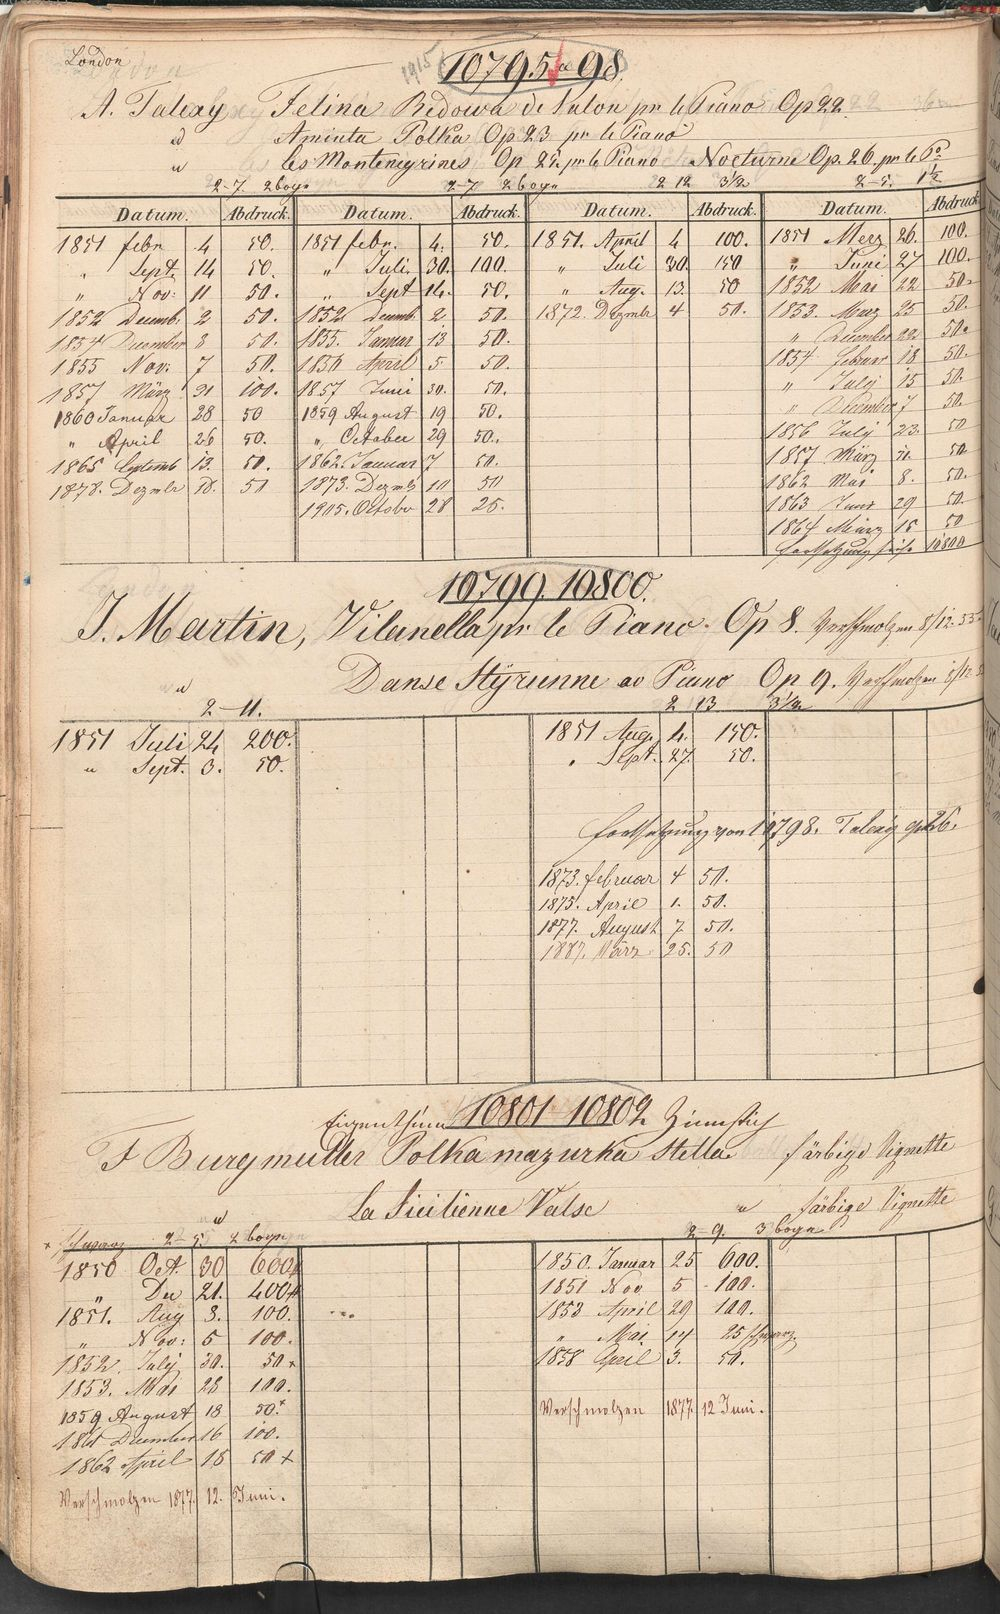 London
1915
10795 a 98.
A. Talexy Felina Redowa de Salon pr le Piano Op 22.
" Aminta Polka Op 23 pr le Piano
" Les Montenegrines Op 24. pr le Piano Nocturne Op. 26. pr le Po
2-7. 2 bogn 2-7 2 bogn 2 12 3½ 2-5. 1½
Datum. Abdruck. Datum. Abdruck. Datum. Abdruck. Datum. Abdruck
1851 febr 4 50. 1851 febr. 4. 50. 1851. April 4 100. 1851 Merz 26. 100.
" Sept. 14 50. " Juli 30. 100. " Juli 30. 150 " Juni 27 100.
" Nov: 11 50. " Sept 14. 50. " Aug. 13. 50 1852 Mai 22 50.
1852 Decemb. 2 50. 1852 Decemb. 2. 50. 1872. Dezmbr 4 50. 1853. Merz 25 50.
1854 December 8 50. 1855. Januar 13 50. " December 22. 50.
1855 Nov: 7 50. 1856 April 5 50. 1854 Februar 18 50.
1857 März 31 100. 1857 Juni 30. 50. " July 15 50.
1860 Januar 28 50 1859 August 19 50. " December 7 50
" April 26 50. " October 29 50. 1856 July 23. 50
1865 Septemb 13. 50. 1862. Januar 7 50. 1857 März 31. 50
1878. Dezmbr 18. 50 1873. Dezmb 10 50 1862 Mai 8. 50.
1905. Octobr 28 25. 1863 Juni 29 50.
1864 März 15 50
Fortsetzung siehe 10800
10799. 10800.
J. Martin, Vilanella pr le Piano Op 8. Verschmolzen 8/12. 55
" Danse Styrienne av Piano Op 9. Verschmolzen 8/12
2-11. 2 13 3½
1851 Juli 24 200. 1851 Aug. 4. 150.
" Sept. 3. 50. " Sept. 27. 50.
Fortsetzung von 10798. Talexy op 26.
1873. februar 4 50.
1875. April 1. 50.
1877. August 7 50.
1887. März 25. 50
10801-10802
Eigenthum Zinnstich
F Burgmuller Polka mazurka Stella färbige Vignette
" La Sicilienne Valse " färbige Vignette
x schwarz 2-5 2 bogn 2-9. 3 bogn
1850 Oct. 30 600 1850. Januar 25 600.
" De 21. 400 1851 Nov 5 100.
1851. Aug 3. 100. 1853 April 29 100.
" Nov: 5 100. " Mai 14 25 schwarz
1852. July 30. 50 x 1858 April 3. 50.
1853. Mai 28 100.
1859 August 18 50. x Verschmolzen 1877. 12 Juni.
December 16 100.
1862 April 18 50 x
Verschmolzen 1877. 12. Juni.